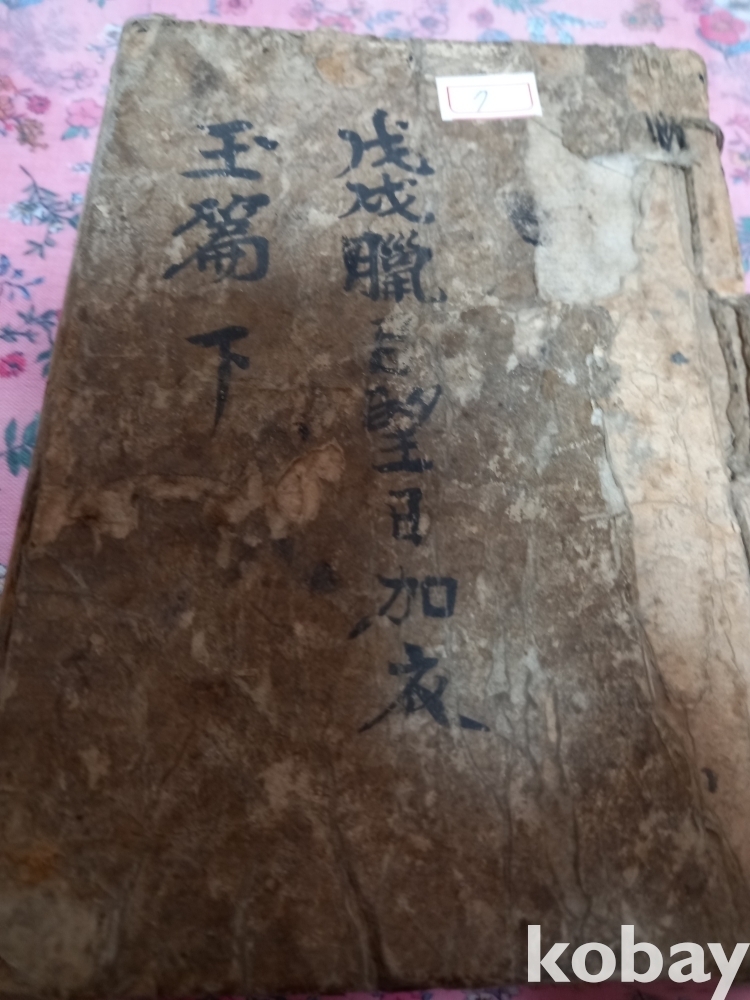 戊戌臘望日加衣
玉篇 下
kobay